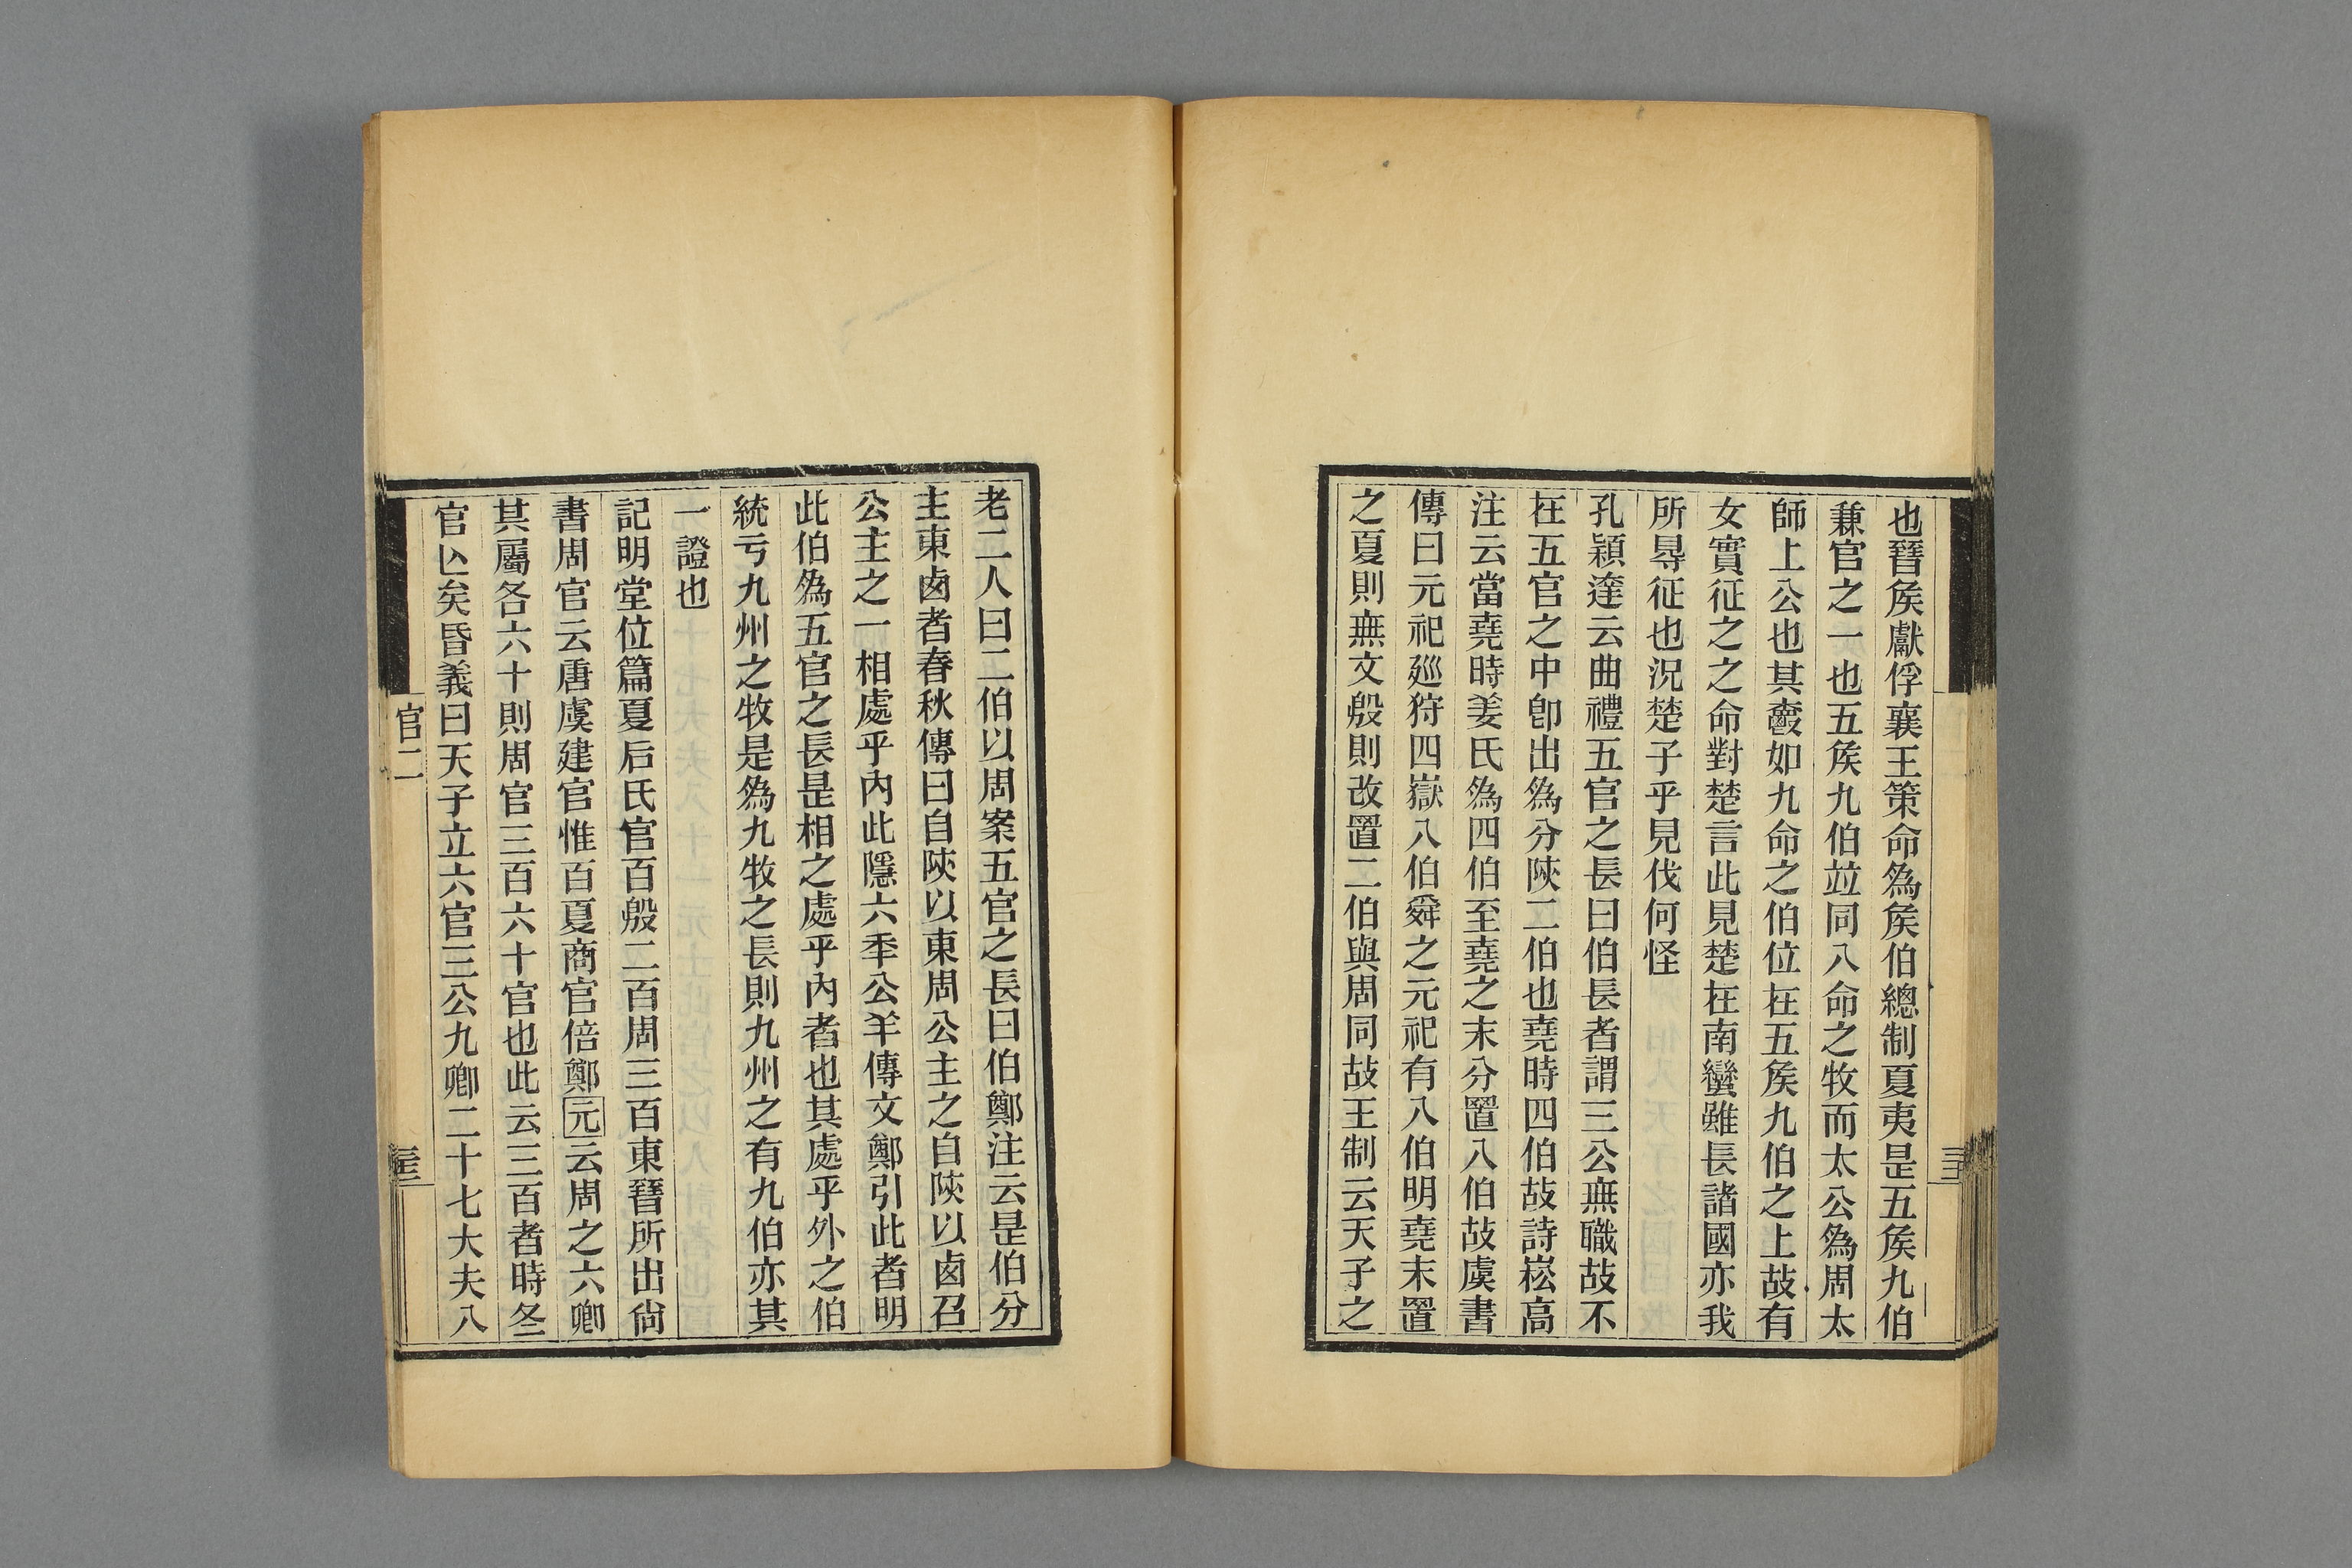 也晉矦獻俘襄王策命爲矦伯總制夏夷是五矦九伯
兼官之一也五矦九伯竝同八命之牧而太公爲周太
師上公也其夌如九命之伯位在五矦九伯之上故有
女實征之之命對楚言此見楚在南蠻雖長諸國亦我
所㝵征也況楚子乎見伐何怪
孔穎達云曲禮五官之長曰伯長者謂三公無職故不
在五官之中卽出爲分陝二伯也堯時四伯故詩崧高
注云當堯時姜氏爲四伯至堯之末分置八伯故虞書
傳曰元祀廵狩四嶽八伯舜之元祀有八伯明堯末置
之夏則無文殷則改置二伯與周同故王制云天子之
老二人曰二伯以周案五官之長曰伯鄭注云是伯分
主東卤者春秋傳曰自陝以東周公主之自陝以卤召
公主之一相處乎內此隱六秊公羊傳文鄭引此者明
此伯爲五官之長是相之處乎內者也其處乎外之伯
統亏九州之牧是爲九牧之長則九州之有九伯亦其
一證也
記明堂位篇夏后氏官百殷二百周三百東晉所出尙
書周官云唐虞建官惟百夏商官倍鄭元云周之六卿
其屬各六十則周官三百六十官也此云三百者時冬
官亾矣昏義曰天子立六官三公九卿二十七大夫八
官二